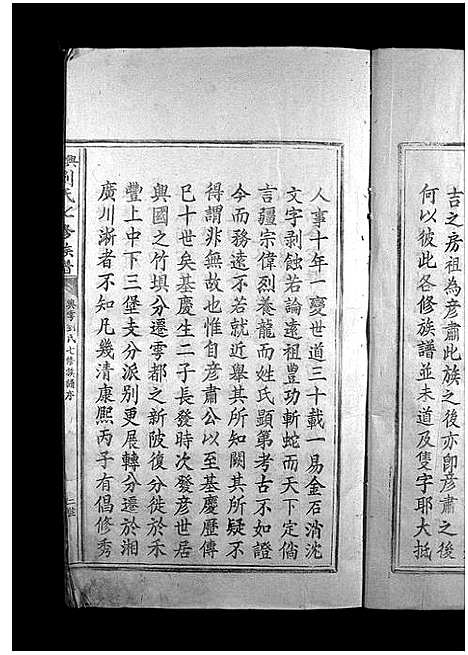 吉之房祖為彥肅此族之後亦卽彥肅之後
何以彼此各修族譜並未道及隻字耶大抵
人事十年一變世道三十載一易金石消沈
文字剥蝕若論遠祖豐功斬蛇而天下定倘
言疆宗偉烈養龍而姓氏顯第考古不如證
今而務遠不若就近舉其所知闕其所疑不
得謂非無故也惟自彥肅公以至基慶歷傳
巳十世矣基慶生二子長發時次發彥世居
興國之竹埧分遷雩都之新陂復分徙於禾
豐上中下三堡支分派別更展轉分遷於湘
廣川淅者不知凡幾清康熈丙子有倡修秀
興 劉氏七修族譜
興雩劉氏七修族譜序